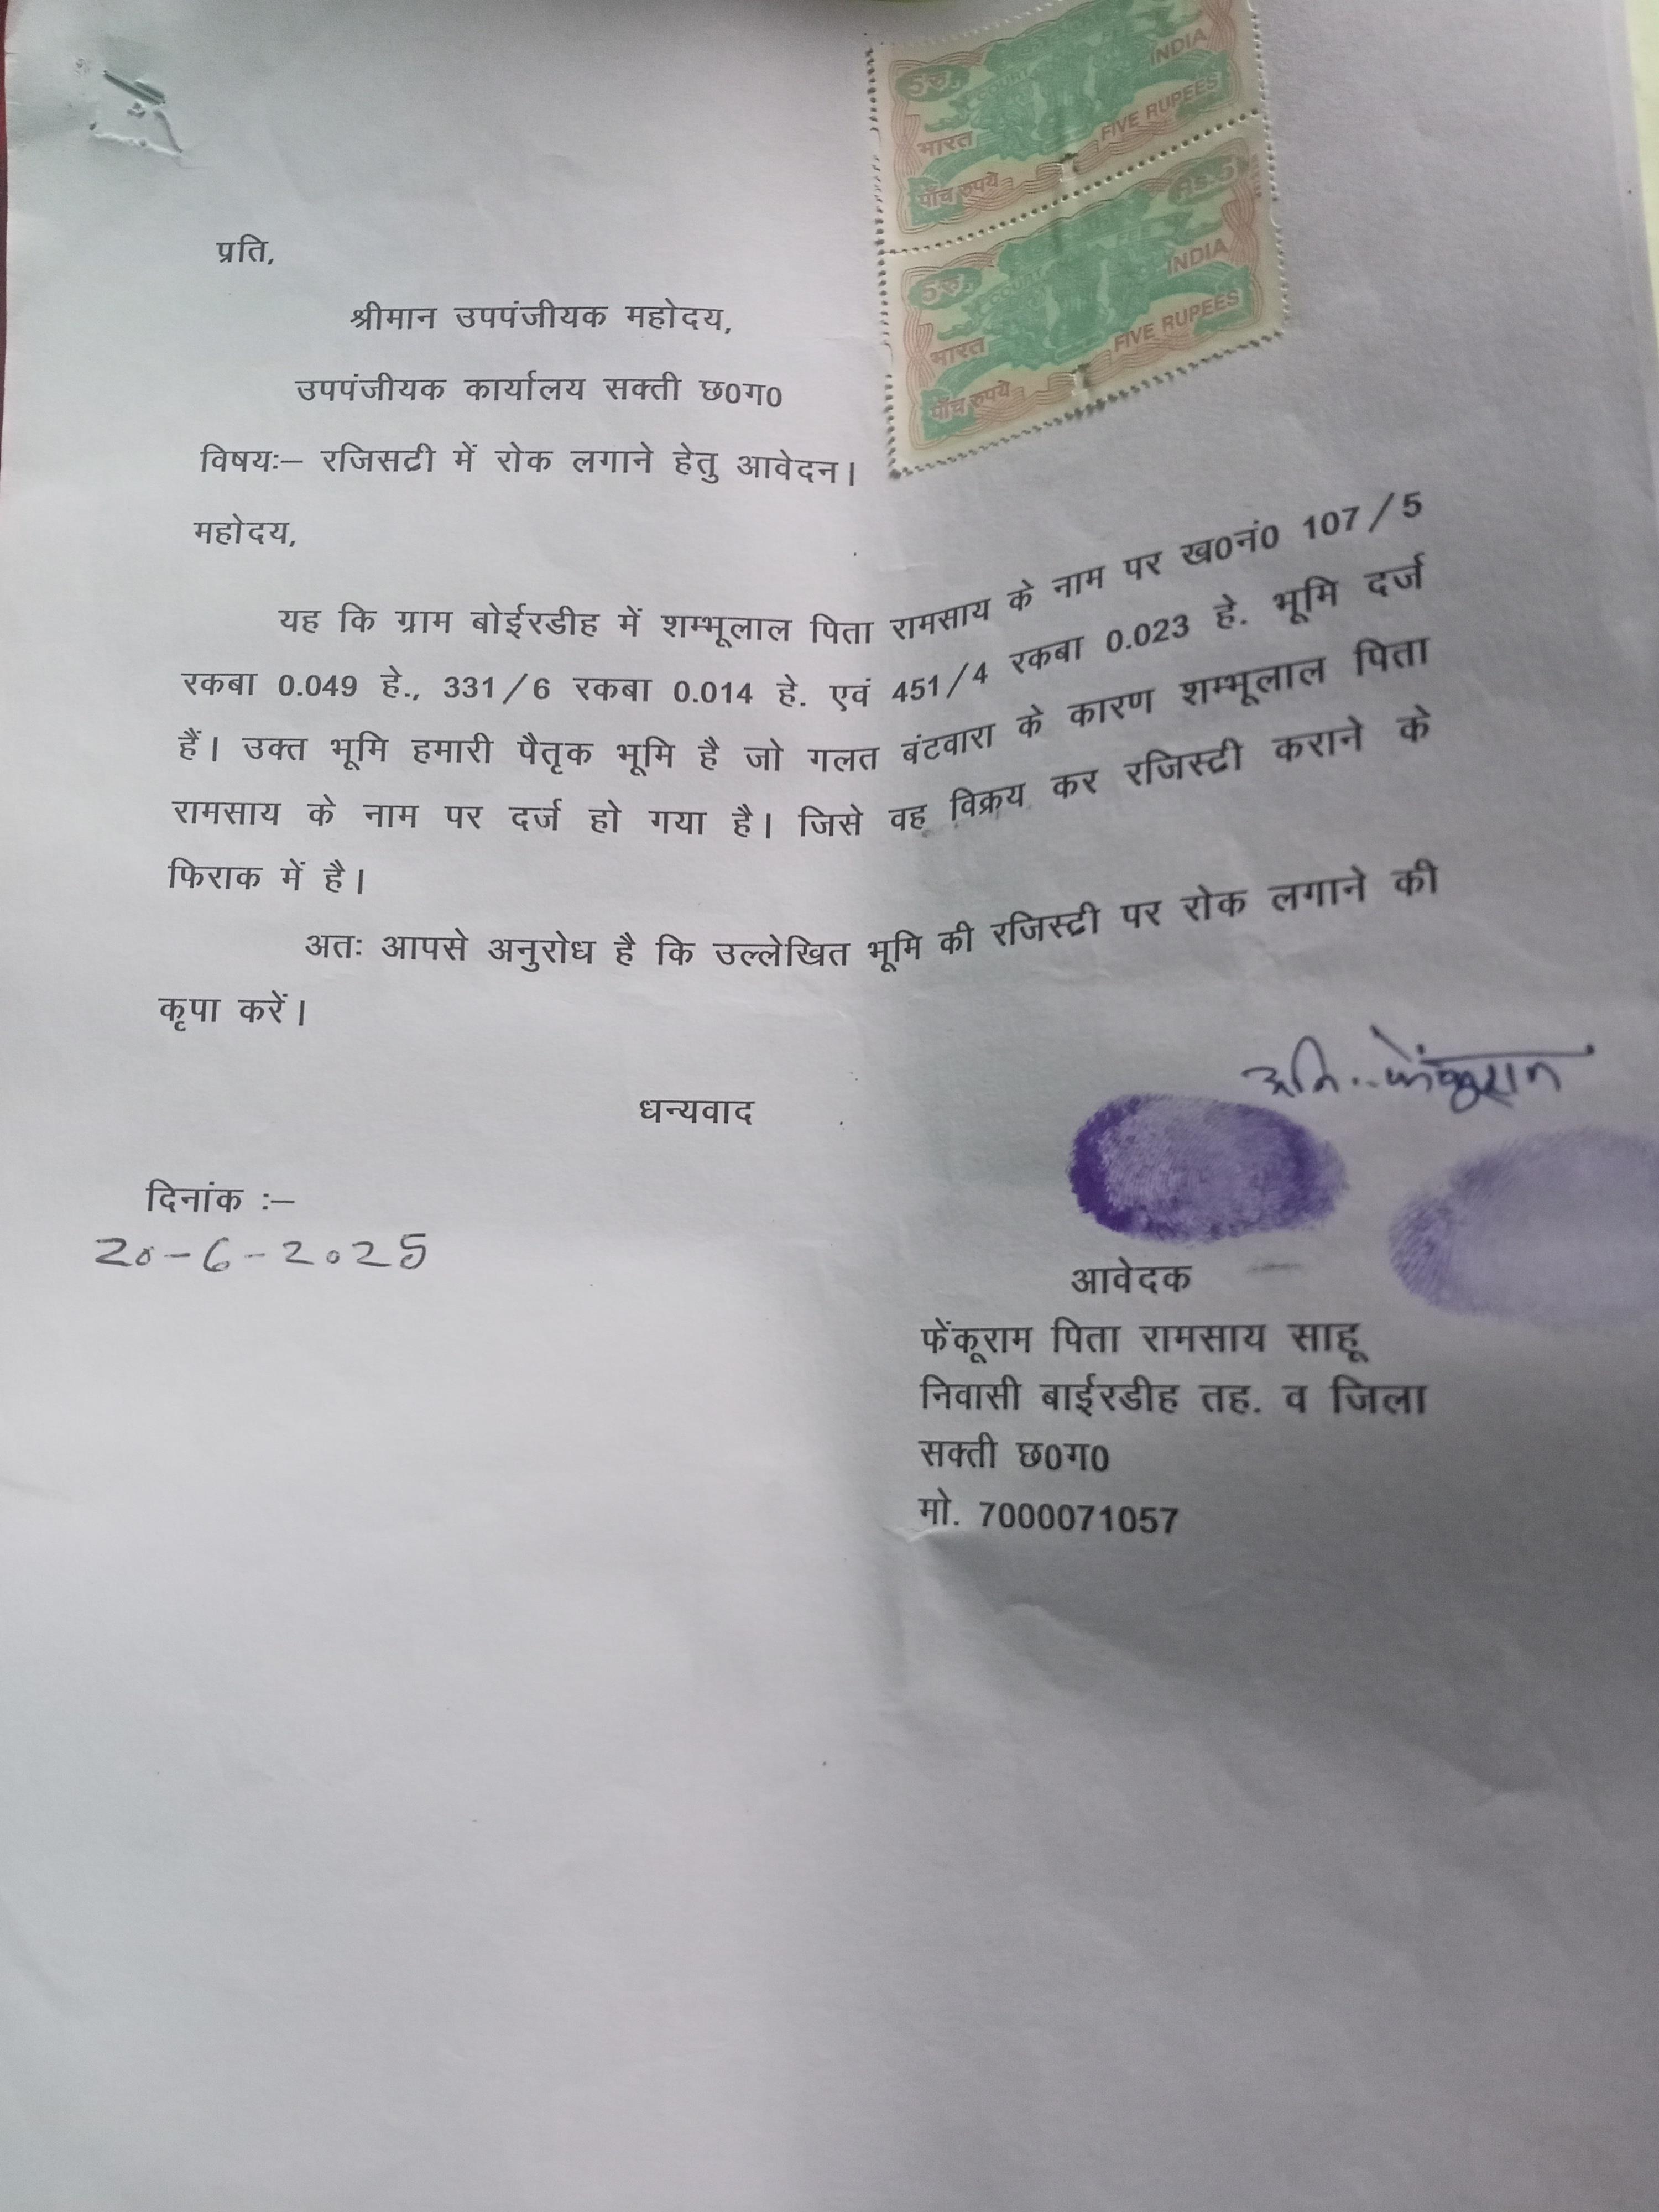 5रु.
INDIA
भारत
FIVE RUPEES
पाँच रुपये
Rs.5
5रु.
INDIA
भारत
FIVE RUPEES
पाँच रुपये
प्रति,
श्रीमान उपपंजीयक महोदय,
उपपंजीयक कार्यालय सक्ती छ0ग0
विषयः– रजिसटी में रोक लगाने हेतु आवेदन।
महोदय,
यह कि ग्राम बोईरडीह में शम्भूलाल पिता रामसाय के नाम पर ख0नं0 107/5
रकबा 0.049 हे., 331/6 रकबा 0.014 हे. एवं 451/4 रकबा 0.023 हे. भूमि दर्ज
हैं। उक्त भूमि हमारी पैतृक भूमि है जो गलत बंटवारा के कारण शम्भूलाल पिता
रामसाय के नाम पर दर्ज हो गया है। जिसे वह विक्रय कर रजिस्टी कराने के
फिराक में है।
अतः आपसे अनुरोध है कि उल्लेखित भूमि की रजिस्टी पर रोक लगाने की
कृपा करें।
फेंकूराम
धन्यवाद
दिनांक :–
20-6-2025
आवेदक
फेंकूराम पिता रामसाय साहू
निवासी बाईरडीह तह. व जिला
सक्ती छ0ग0
मो. 7000071057